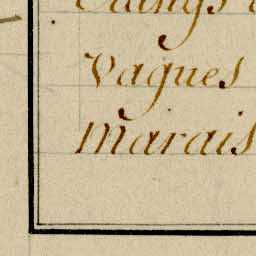 Vagues
Marais